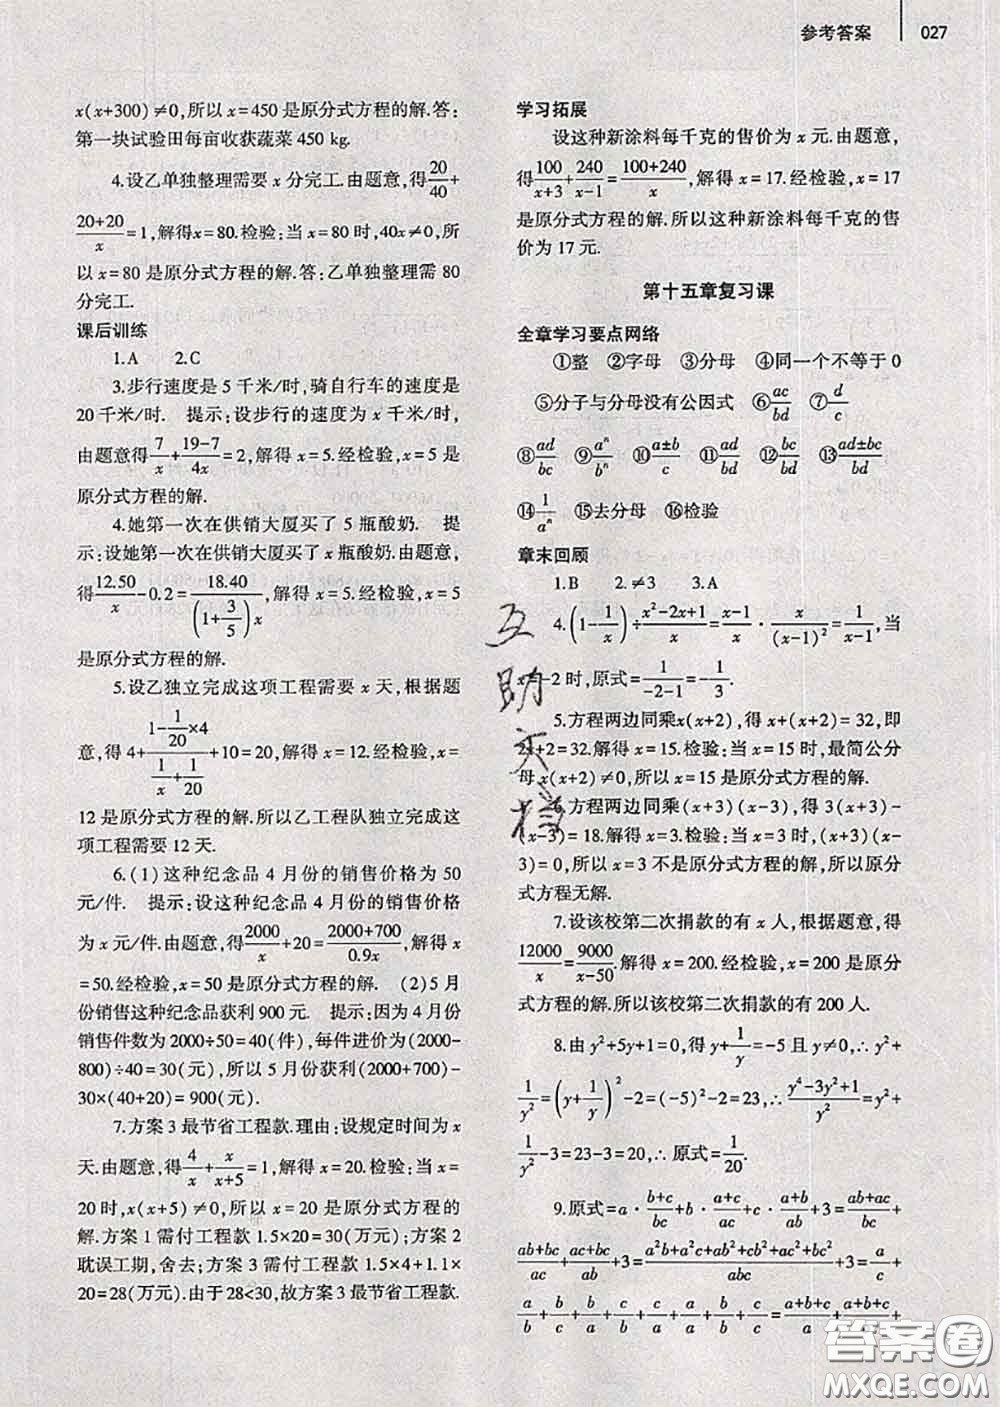 参考答案 027
x(x+300)≠0,所以 x=450 是原分式方程的解.答:
第一块试验田每亩收获蔬菜 450 kg.
4.设乙单独整理需要 x 分完工.由题意,得20/40+
(20+20)/x=1,解得x=80.检验:当 x=80 时,40x≠0,所
以 x=80 是原分式方程的解.答:乙单独整理需 80
分完工.
课后训练
1.A 2.C
3.步行速度是 5 千米/时,骑自行车的速度是
20 千米/时. 提示:设步行的速度为 x 千米/时,
由题意得7/x+(19-7)/4x=2,解得 x=5.经检验,x=5 是
原分式方程的解.
4.她第一次在供销大厦买了 5 瓶酸奶. 提
示:设她第一次在供销大厦买了 x 瓶酸奶.由题意,
得12.50/x-0.2=18.40/((1+3/5)x),解得 x=5.经检验,x=5
是原分式方程的解.
5.设乙独立完成这项工程需要 x 天,根据题
意,得 4+(1-1/20×4)/(1/x+1/20)+10=20,解得 x=12.经检验,x=
12 是原分式方程的解.所以乙工程队独立完成这
项工程需要 12 天.
6.(1)这种纪念品 4 月份的销售价格为 50
元/件. 提示:设这种纪念品 4 月份的销售价格
为 x 元/件.由题意,得2000/x+20=(2000+700)/0.9x,解得 x
=50.经检验,x=50 是原分式方程的解. (2)5 月
份销售这种纪念品获利 900 元. 提示:因为 4 月份
销售件数为 2000÷50=40(件),每件进价为(2000-
800)÷40=30(元),所以 5 月份获利(2000+700)-
30×(40+20)=900(元).
7.方案 3 最节省工程款.理由:设规定时间为 x
天.由题意,得4/x+x/(x+5)=1,解得 x=20.检验:当 x=
20 时,x(x+5)≠0,所以 x=20 是原分式方程的
解.方案 1 需付工程款 1.5×20=30(万元);方案 2
耽误工期,舍去;方案 3 需付工程款 1.5×4+1.1×
20=28(万元).由于 28<30,故方案 3 最节省工程款.
学习拓展
设这种新涂料每千克的售价为 x 元.由题意,
得100/(x+3)+240/(x-1)=(100+240)/x,解得 x=17.经检验,x=17
是原分式方程的解.所以这种新涂料每千克的售
价为 17 元.
第十五章复习课
全章学习要点网络
①整 ②字母 ③分母 ④同一个不等于 0
⑤分子与分母没有公因式 ⑥ac/bd ⑦d/c
⑧ad/bc ⑨aⁿ/bⁿ ⑩(a±b)/c ⑪ad/bd ⑫bc/bd ⑬(ad±bc)/bd
⑭1/aⁿ ⑮去分母 ⑯检验
章末回顾
1.B 2.≠3 3.A
4.(1-1/x)÷(x²-2x+1)/x=(x-1)/x·x/(x-1)²=1/(x-1),当
x=-2 时,原式=1/(-2-1)=-1/3.
5.方程两边同乘x(x+2),得 x+(x+2)=32,即
2x+2=32.解得 x=15.检验:当 x=15 时,最简公分
母 x(x+2)≠0,所以 x=15 是原分式方程的解.
6.方程两边同乘(x+3)(x-3),得 3(x+3)-
(x-3)=18.解得 x=3.检验:当 x=3 时,(x+3)(x-
3)=0,所以 x=3 不是原分式方程的解,所以原分
式方程无解.
7.设该校第二次捐款的有 x 人,根据题意,得
12000/x=9000/(x-50).解得 x=200.经检验,x=200 是原分
式方程的解.所以该校第二次捐款的有 200 人.
8.由 y²+5y+1=0,得 y+1/y=-5 且 y≠0,∴ y²+
1/y²=(y+1/y)²-2=(-5)²-2=23,∴(y⁴-3y²+1)/y²=y²+
1/y²-3=23-3=20,∴ 原式=1/20.
9.原式=a·(b+c)/bc+b·(a+c)/ac+c·(a+b)/ab+3=(ab+ac)/bc+
(ab+bc)/ac+(ac+bc)/ab+3=(a²b+a²c+ab²+cb²+ac²+bc²)/abc+3=a/c+
a/b+b/c+b/a+c/a+c/b+a/a+b/b+c/c=(a+b+c)/a+(a+b+c)/b+
互助文档
答案圈
MXQE.COM